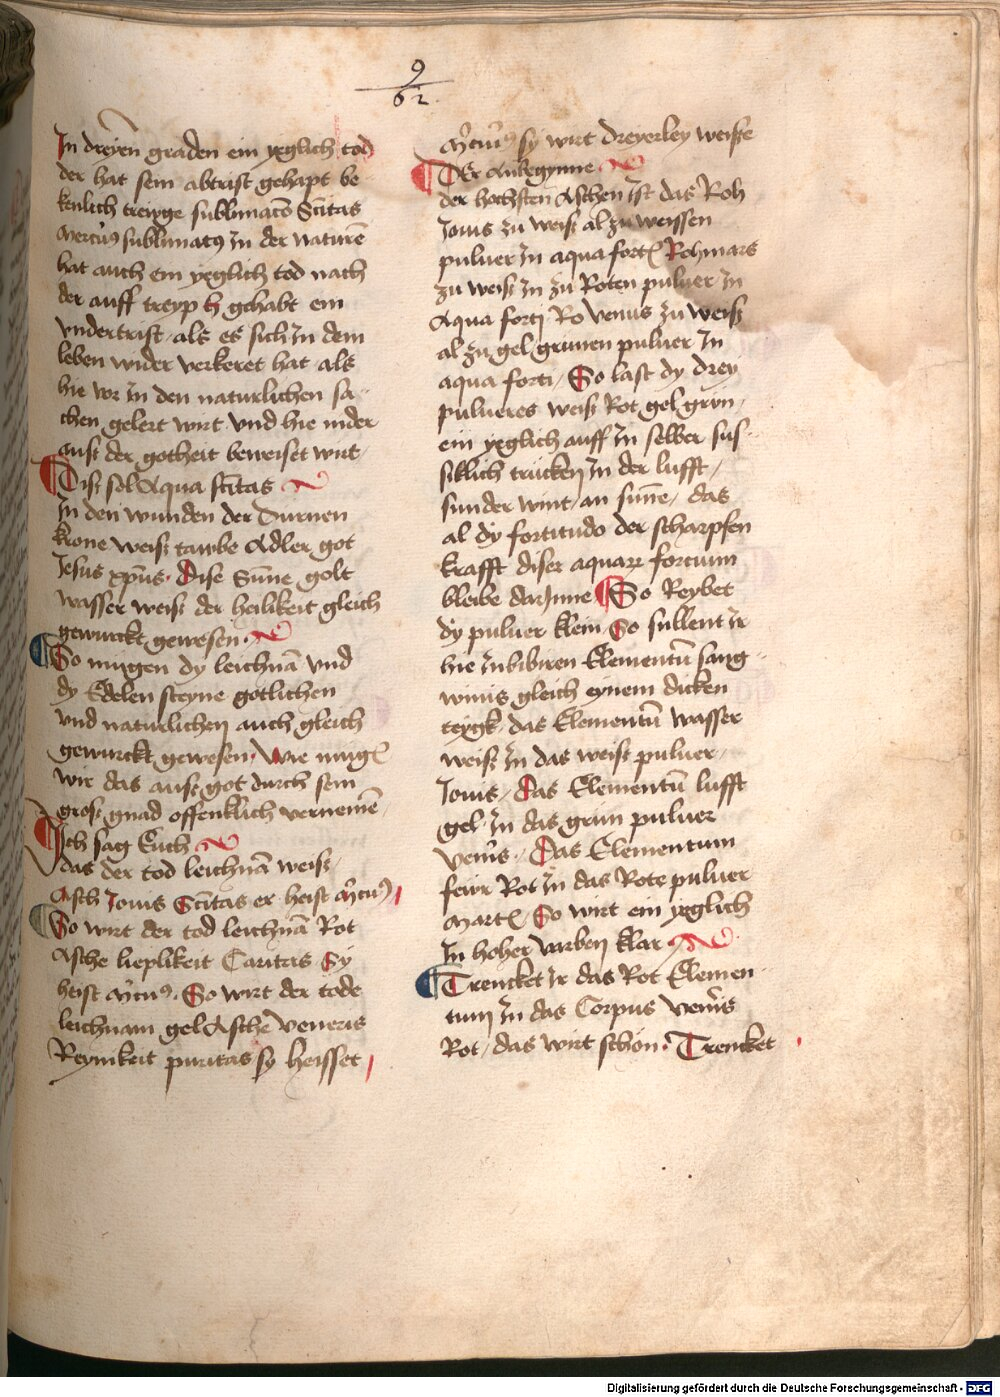 9
62
In dreyen graden ein yeglich tod
der hat sein abtrist gehapt be
kenlich trewge sublimaco Scītas
mercuͥꝰ sublimatꝯ In der naturē
hat auch ein yeglich tod nach
der auff treyp h gehabt ein
vndertrist als es sich In dem
leben wider verkeret hat als
hie vor In den naturlichen sa
chen gelert wirt vnd hie nider
ausz der gotheit beweiset wirt
Disz sol Aqua scītas
In den wunden der Durnen
krone weisz tawbe Adler got
Jesus xpūs Dise Sūne golt
wasser weisz der heilikeit gleich
gewurckt gewesen
So mugen dy leichnā vnd
dy Edelen steyne gotlichen
vnd naturlichen auch gleich
gewurckt gewesen Wie mugē
wir das ausz got durch sein
grosz gnad offenklich vernemē
Ich sag Euch
das der tod leichnā weisz
Asch Jouis Scītas er heist m̄cuꝰ
So wirt der tod leichnā Rot
Asche lieplikeit Caritas Sy
heist m̄cuꝰ So wirt der tode
leichnam gel Asche veneris
Reynikeit puritas sy heisset
m̄cuꝰ sy wirt dreyerley weisze
Der Anbegynne
der hochsten Aschen ist das Roh
Jouis zu weisz al zu weissen
puluer In aqua forti Roh mars
zu weisz In zu Roten puluer In
Aqua forti Ro venus zu weisz
al zu gel grunen puluer In
aqua forti So last dy drey
pulueres weisz Rot gel grun
ein yeglich auff In selber sus
siklich trucken In der lufft
sunder wint an sunne das
al dy fortitudo der scharpfen
krafft diser aquarum fortium
bleibe darInne So Reybet
dy puluer klein So sullent Ir
hie Inbibiren Elementū sang
winis gleich eynem dicken
teygk das Elementū wasser
weisz In das weisz puluer
Jouis Das Elementū lufft
gel In das grun puluer
venīs Das Elementum
feur Rot In das Rote puluer
martē So wirt ein yeglich
In hoher varben klar
Trencket Ir das Rot Elemen
tum In das Corpus venīs
Rot das wirt schon Trencket
Digitalisierung gefördert durch die Deutsche Forschungsgemeinschaft - DFG